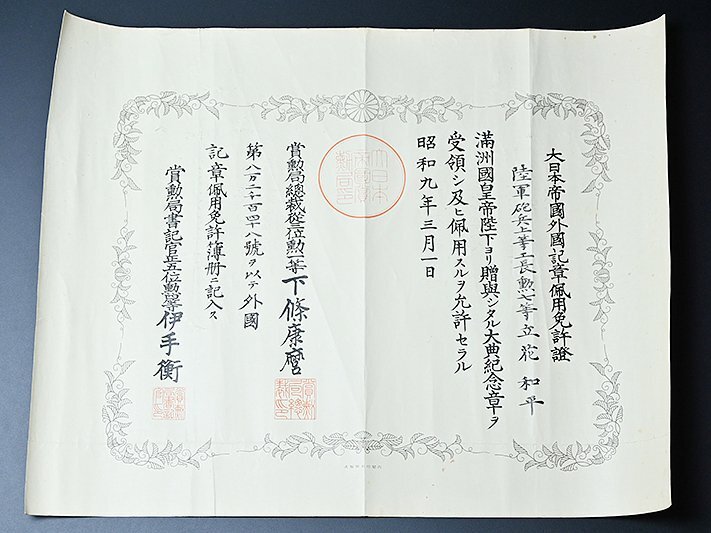 大日本帝國外國記章佩用免許證
陸軍砲兵上等工長勲七等立花和平
滿洲國皇帝陛下ヨリ贈與シタル大典紀念章ヲ
受領シ及ヒ佩用スルヲ允許セラル
昭和九年三月一日
賞勲局總裁從三位勲一等下條康麿
第八万二千百四十八號ヲ以テ外國
記章佩用免許簿册ニ記入ス
賞勲局書記官正五位勲等伊手衡